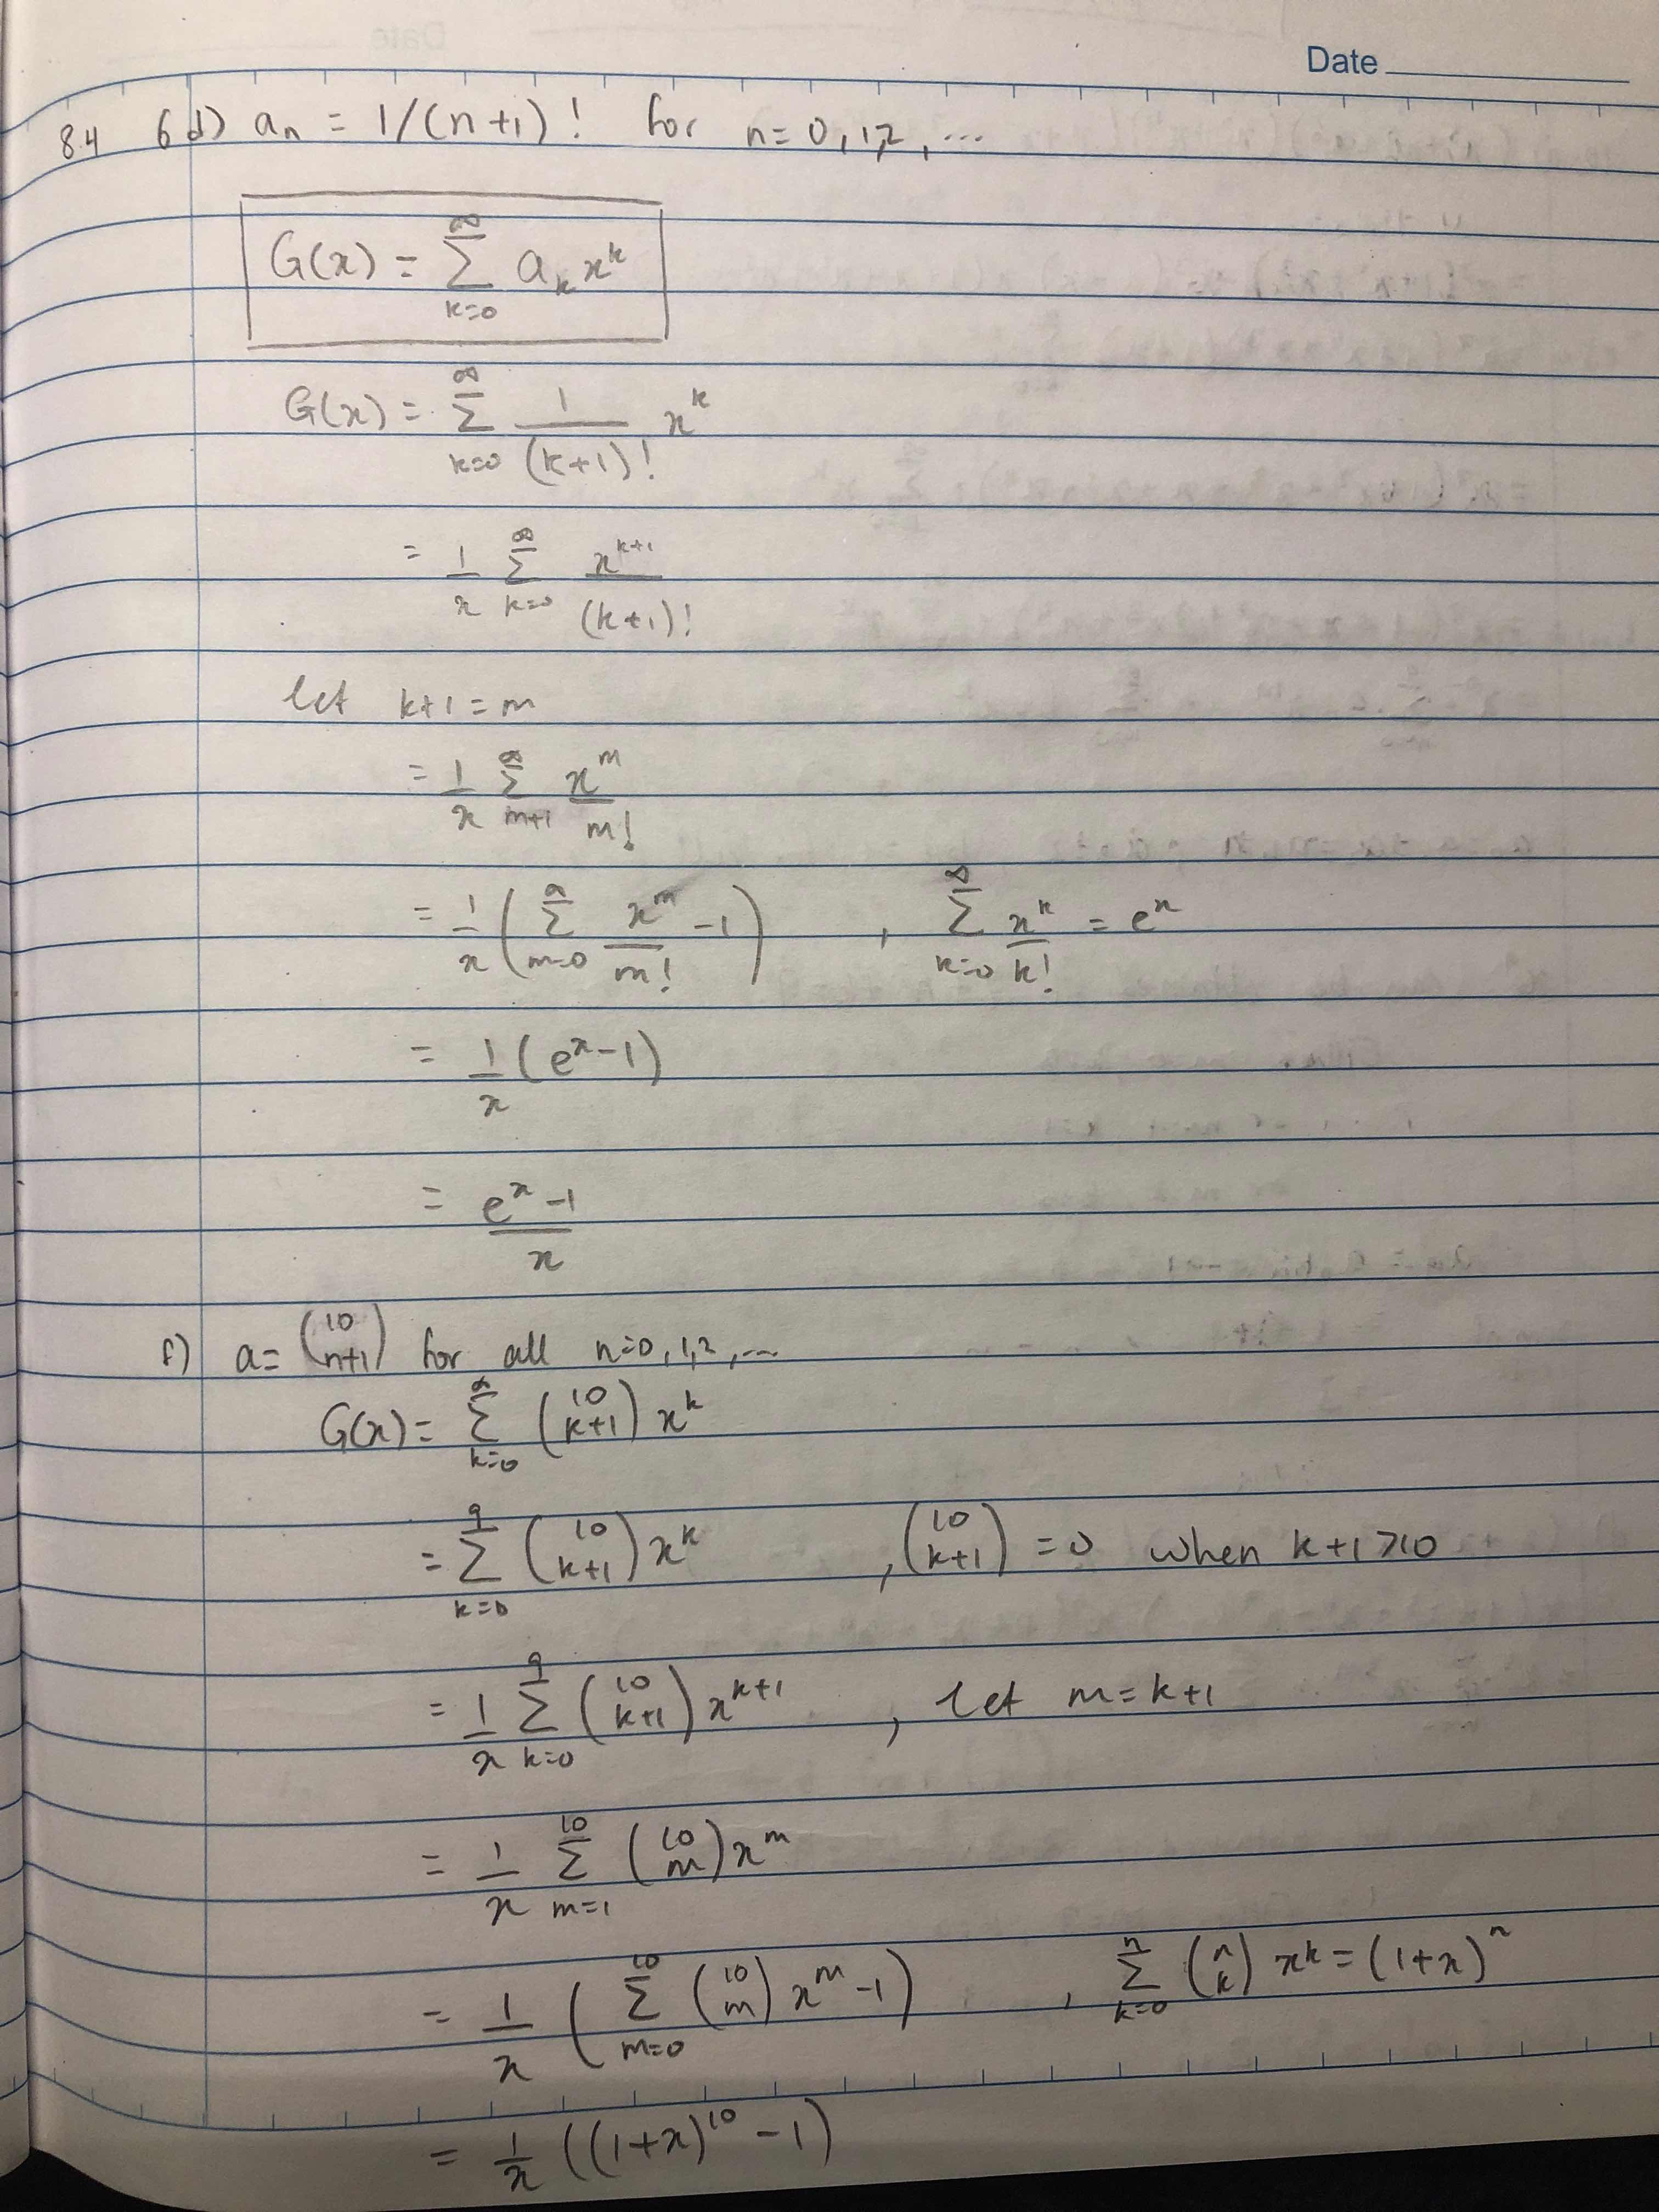 Date
8.4 6d) aₙ = 1/(n+1)! for n=0,1,2,...
G(x) = ∑_{k=0}^{∞} aₖ x^k
G(x) = ∑_{k=0}^{∞} 1/(k+1)! x^k
= 1/x ∑_{k=0}^{∞} x^{k+1}/(k+1)!
let k+1=m
= 1/x ∑_{m+1}^{∞} x^m/m!
= 1/x (∑_{m=0}^{∞} x^m/m! -1) , ∑_{k=0}^{∞} x^k/k! = e^x
= 1/x (e^x-1)
= (e^x -1)/x
f) a= (10 n+1) for all n=0,1,2,...
G(x)= ∑_{k=0}^{∞} (10 k+1) x^k
= ∑_{k=0}^{9} (10 k+1) x^k , (10 k+1) =0 when k+1>10
= 1/x ∑_{k=0}^{9} (10 k+1) x^{k+1} , let m=k+1
= 1/x ∑_{m=1}^{10} (10 m) x^m
= 1/x (∑_{m=0}^{10} (10 m) x^m -1) , ∑_{k=0}^{n} (n k) x^k = (1+x)^n
= 1/x ((1+x)^{10} -1)